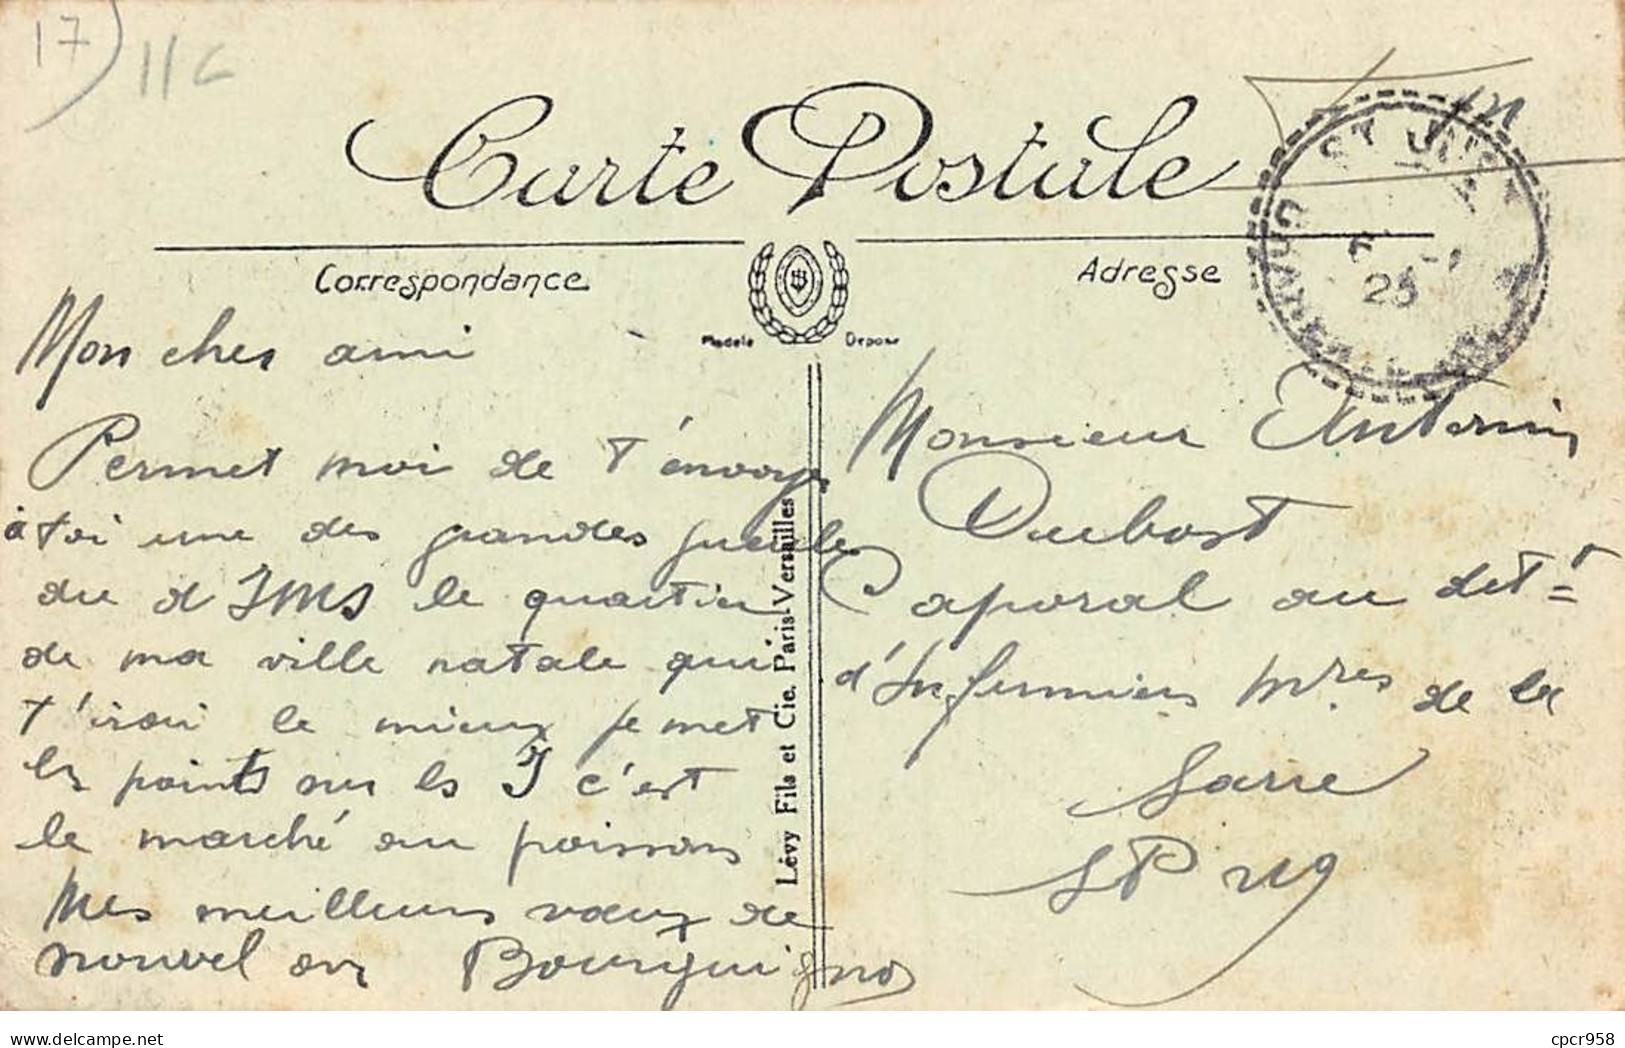 17
11c
Carte Postale
Correspondance
Adresse
Modèle Déposé
ST JUST
25
Mon cher ami
Permet moi de t'énvoyer
à toi une des grandes gueules
du d JMS le quartier
de ma ville natale qui
t'irai le mieux je met
les points sur ls J c'est
le marché au poissons
Mes meilleurs vœux de
nouvel an Bourguignon
Lévy Fils et Cie. Paris-Versailles
Monsieur Antonin
Dubost
Caporal au dét t
d'Infirmiers Mres de la
Sarre
SP
www.delcampe.net
cpcr958